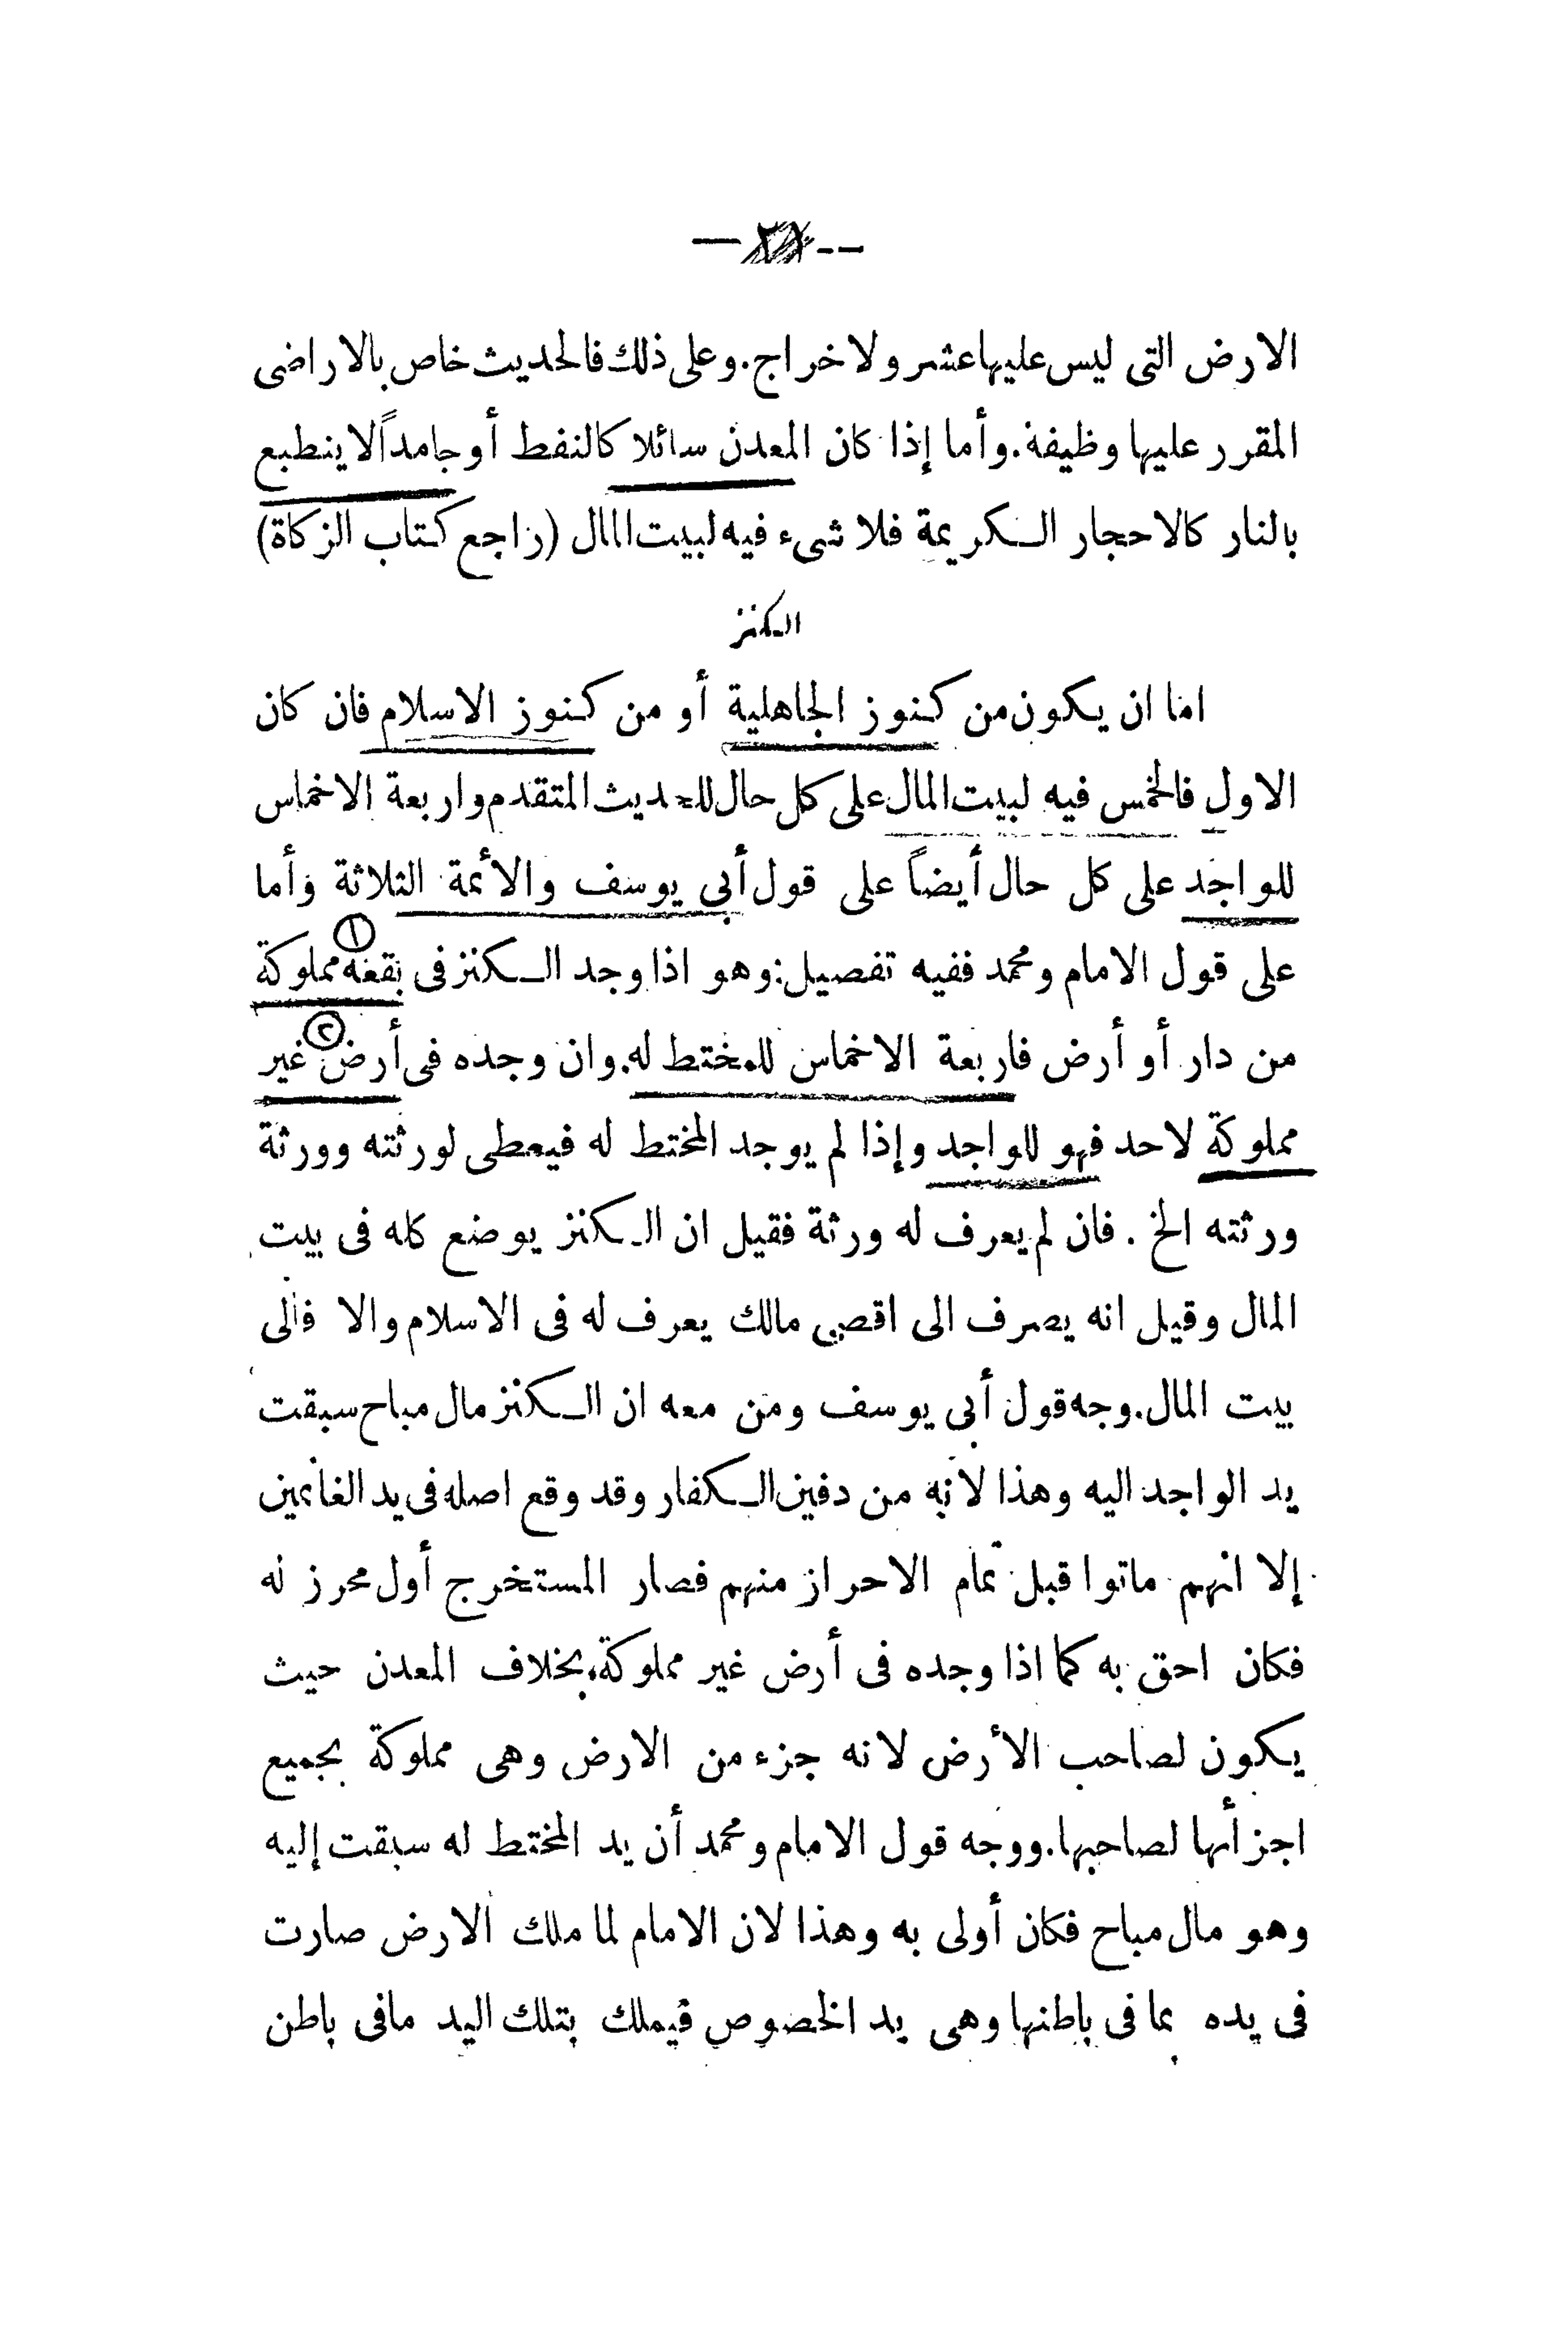 الارض التى ليس عليها عشر ولا خراج. وعلى ذلك فالحديث خاص بالاراضى
المقرر عليها وظيفة. وأما إذا كان المعدن سائلا كالنفط أو جامداً لا ينطبع
بالنار كالاحجار الكريمة فلا شىء فيه لبيت المال (راجع كتاب الزكاة)
الكنز
اما ان يكون من كنوز الجاهلية أو من كنوز الاسلام فان كان
الاول فالخمس فيه لبيت المال على كل حال للحديث المتقدم واربعة الاخماس
للواجد على كل حال أيضاً على قول أبى يوسف والأئمة الثلاثة وأما
على قول الامام ومحمد ففيه تفصيل: وهو اذا وجد الكنز فى بقعة مملوكة
١
من دار أو أرض فاربعة الاخماس للمختط له. وان وجده فى أرض غير
٢
مملوكة لاحد فهو للواجد وإذا لم يوجد المختط له فيعطى لورثته وورثة
ورثته الخ . فان لم يعرف له ورثة فقيل ان الكنز يوضع كله فى بيت
المال وقيل انه يصرف الى اقصى مالك يعرف له فى الاسلام والا فالى
بيت المال. وجه قول أبى يوسف ومن معه ان الكنز مال مباح سبقت
يد الواجد اليه وهذا لانه من دفين الكفار وقد وقع اصله فى يد الغانمين
إلا انهم ماتوا قبل تمام الاحراز منهم فصار المستخرج أول محرز له
فكان احق به كما اذا وجده فى أرض غير مملوكة، بخلاف المعدن حيث
يكون لصاحب الأرض لانه جزء من الارض وهى مملوكة بجميع
اجزأئها لصاحبها. ووجه قول الامام ومحمد أن يد المختط له سبقت إليه
وهو مال مباح فكان أولى به وهذا لان الامام لما ملك الارض صارت
فى يده بما فى باطنها وهى يد الخصوص فيملك بتلك اليد مافى باطن